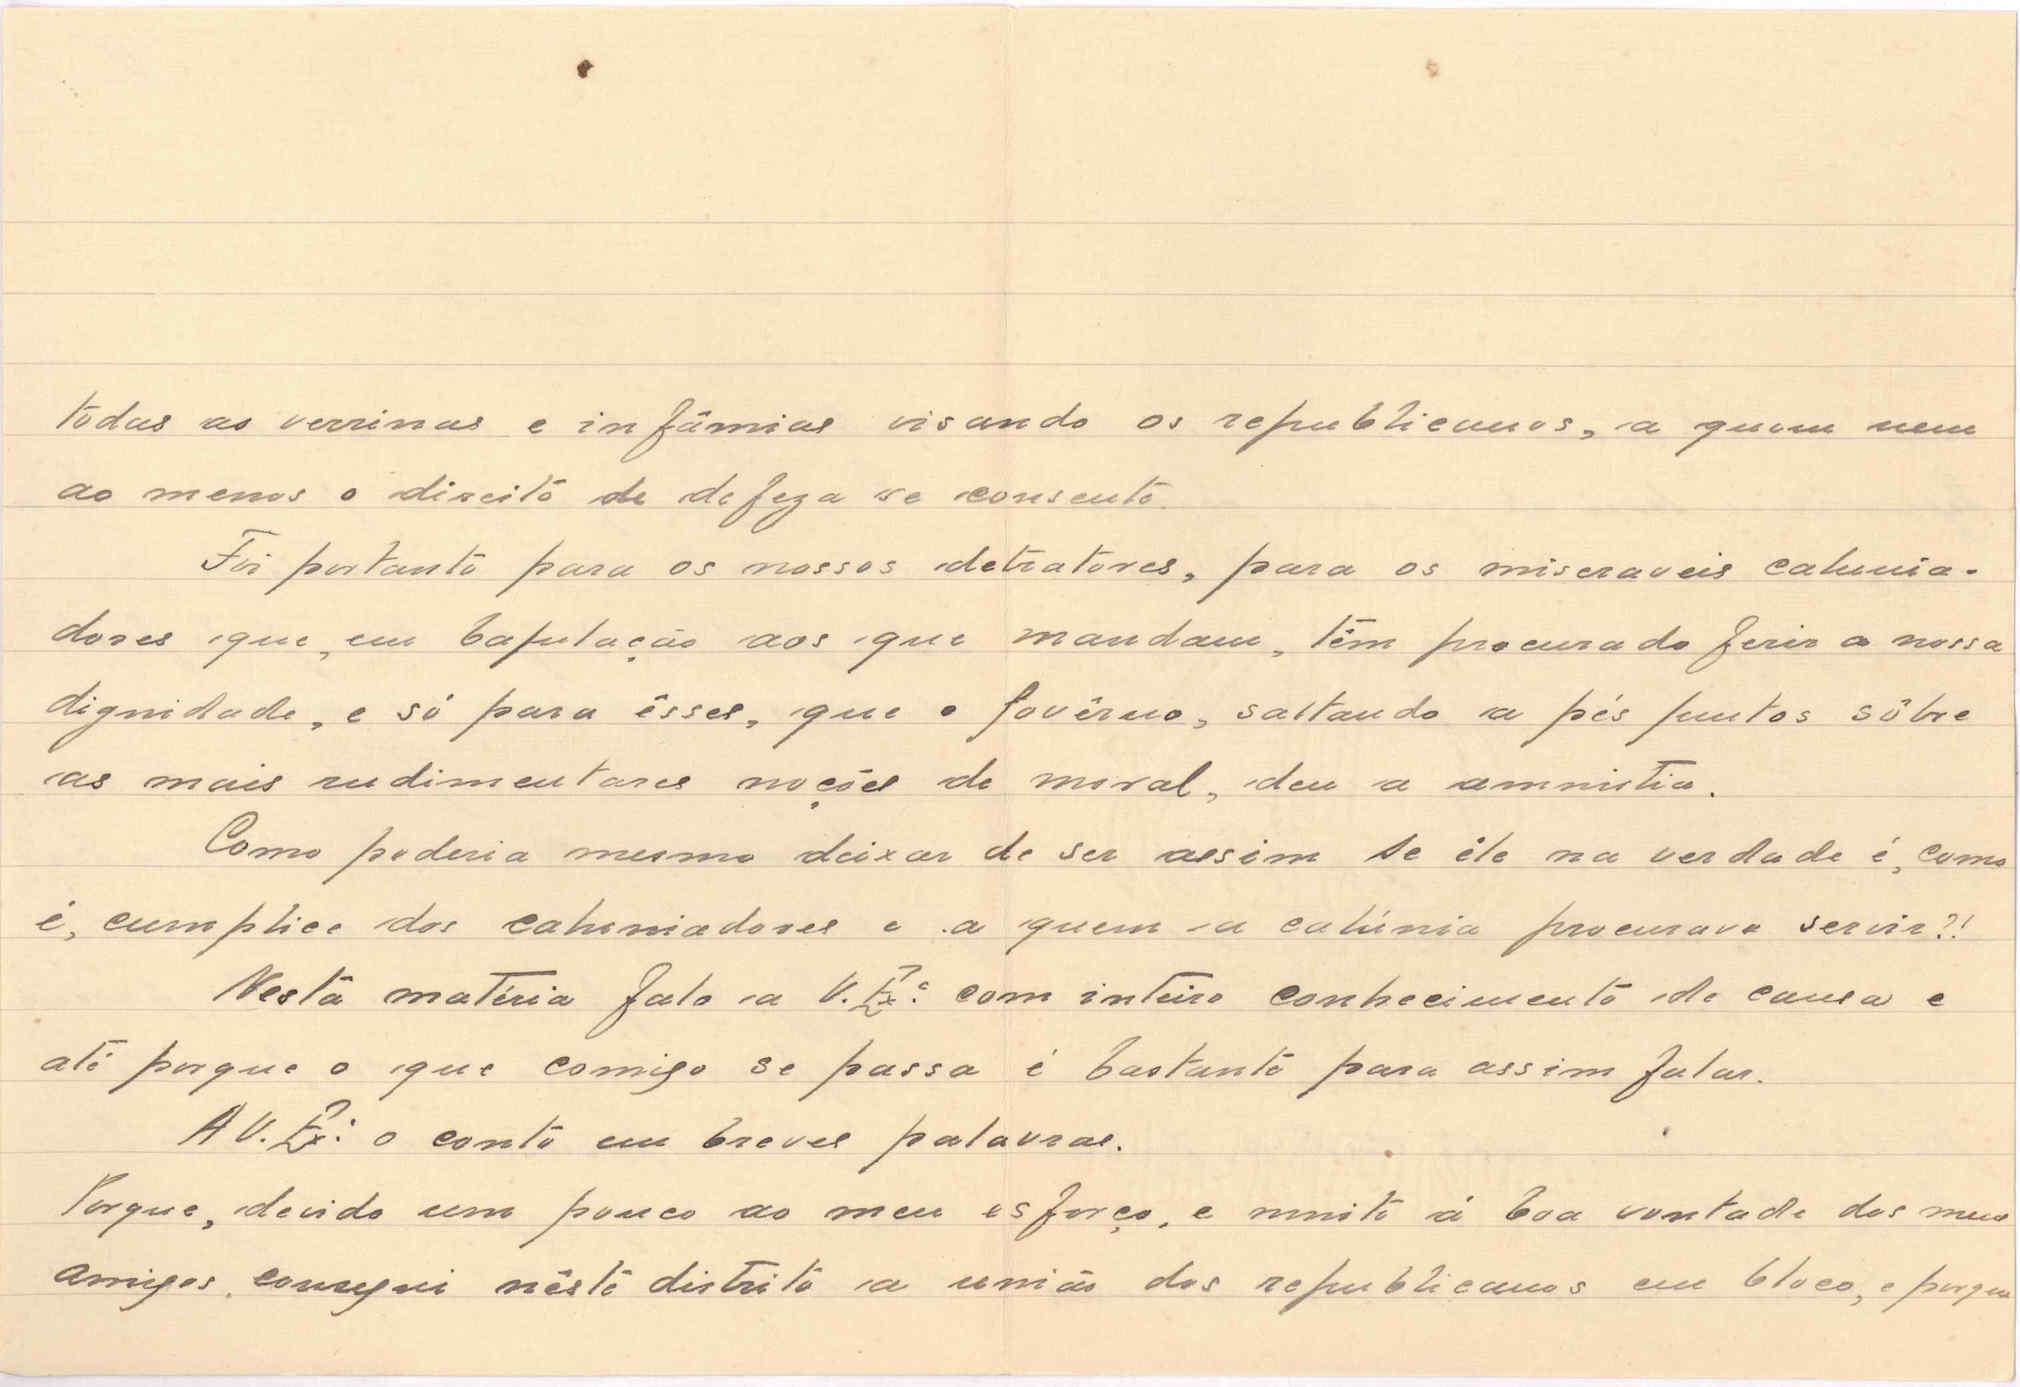 todas as verrinas e infâmias visando os republicanos, a quem nem
ao menos o direito de defeza se consente.
Foi portanto para os nossos detratores, para os miseraveis calunia-
dores que, em bajulação aos que mandam, têm procurado ferir a nossa
dignidade, e só para êsses, que o govêrno, saltando a pés juntos sôbre
as mais rudimentares noções de moral, deu a amnistia.
Como poderia mesmo deixar de ser assim se êle na verdade é, como
é, cumplice dos caluniadores e a quem a calúnia procurava servir?!
Nesta matéria falo a V. Ex.ª com inteiro conhecimento de causa e
até porque o que comigo se passa é bastante para assim falar.
A V. Ex.ª o conto em breves palavras.
Porque, devido um pouco ao meu esforço, e muito á boa vontade dos meus
amigos, consegui nêste distrito a união dos republicanos em bloco, e porque